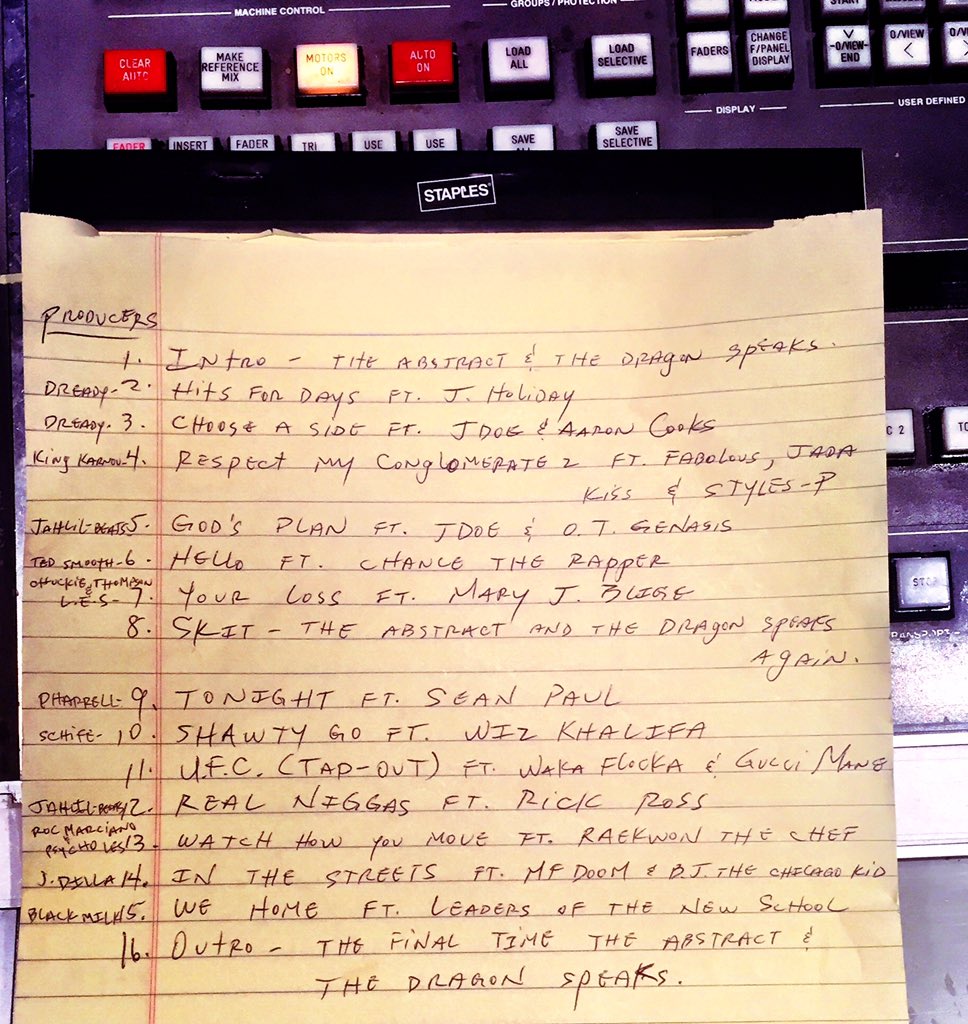 MACHINE CONTROL
GROUPS / PROTECTION
CLEAR AUTO
MAKE REFERENCE MIX
MOTORS ON
AUTO ON
LOAD ALL
LOAD SELECTIVE
FADERS
CHANGE F/PANEL DISPLAY
START
-O/VIEW- END
O/VIEW <
DISPLAY
USER DEFINED
FADER
INSERT
FADER
TRI
USE
USE
SAVE
SAVE SELECTIVE
STAPLES
PRODUCERS
1. INTRO - THE ABSTRACT & THE DRAGON SPEAKS.
DREADY-2. HITS FOR DAYS FT. J. HOLIDAY
DREADY-3. CHOOSE A SIDE FT. JDOE & AARON COOKS
KING KARNOV-4. RESPECT MY CONGLOMERATE 2 FT. FABOLOUS, JADA
KISS & STYLES-P
JAHLIL-BEATS 5. GOD'S PLAN FT. JDOE & O.T. GENASIS
TED SMOOTH-6. HELLO FT. CHANCE THE RAPPER
CHUCKIE THOMPSON &
L.E.S-7. YOUR LOSS FT. MARY J. BLIGE
8. SKIT - THE ABSTRACT AND THE DRAGON SPEAKS
AGAIN.
PHARRELL-9. TONIGHT FT. SEAN PAUL
SCHIFE-10. SHAWTY GO FT. WIZ KHALIFA
11. U.F.C. (TAP-OUT) FT. WAKA FLOCKA & GUCCI MANE
JAHLIL-BEATS 12. REAL NIGGAS FT. RICK ROSS
ROC MARCIANO &
PSYCHO LES 13. WATCH HOW YOU MOVE FT. RAEKWON THE CHEF
J. DILLA 14. IN THE STREETS FT. MF DOOM & B.J. THE CHICAGO KID
BLACK MILK 15. WE HOME FT. LEADERS OF THE NEW SCHOOL
16. OUTRO - THE FINAL TIME THE ABSTRACT &
THE DRAGON SPEAKS.